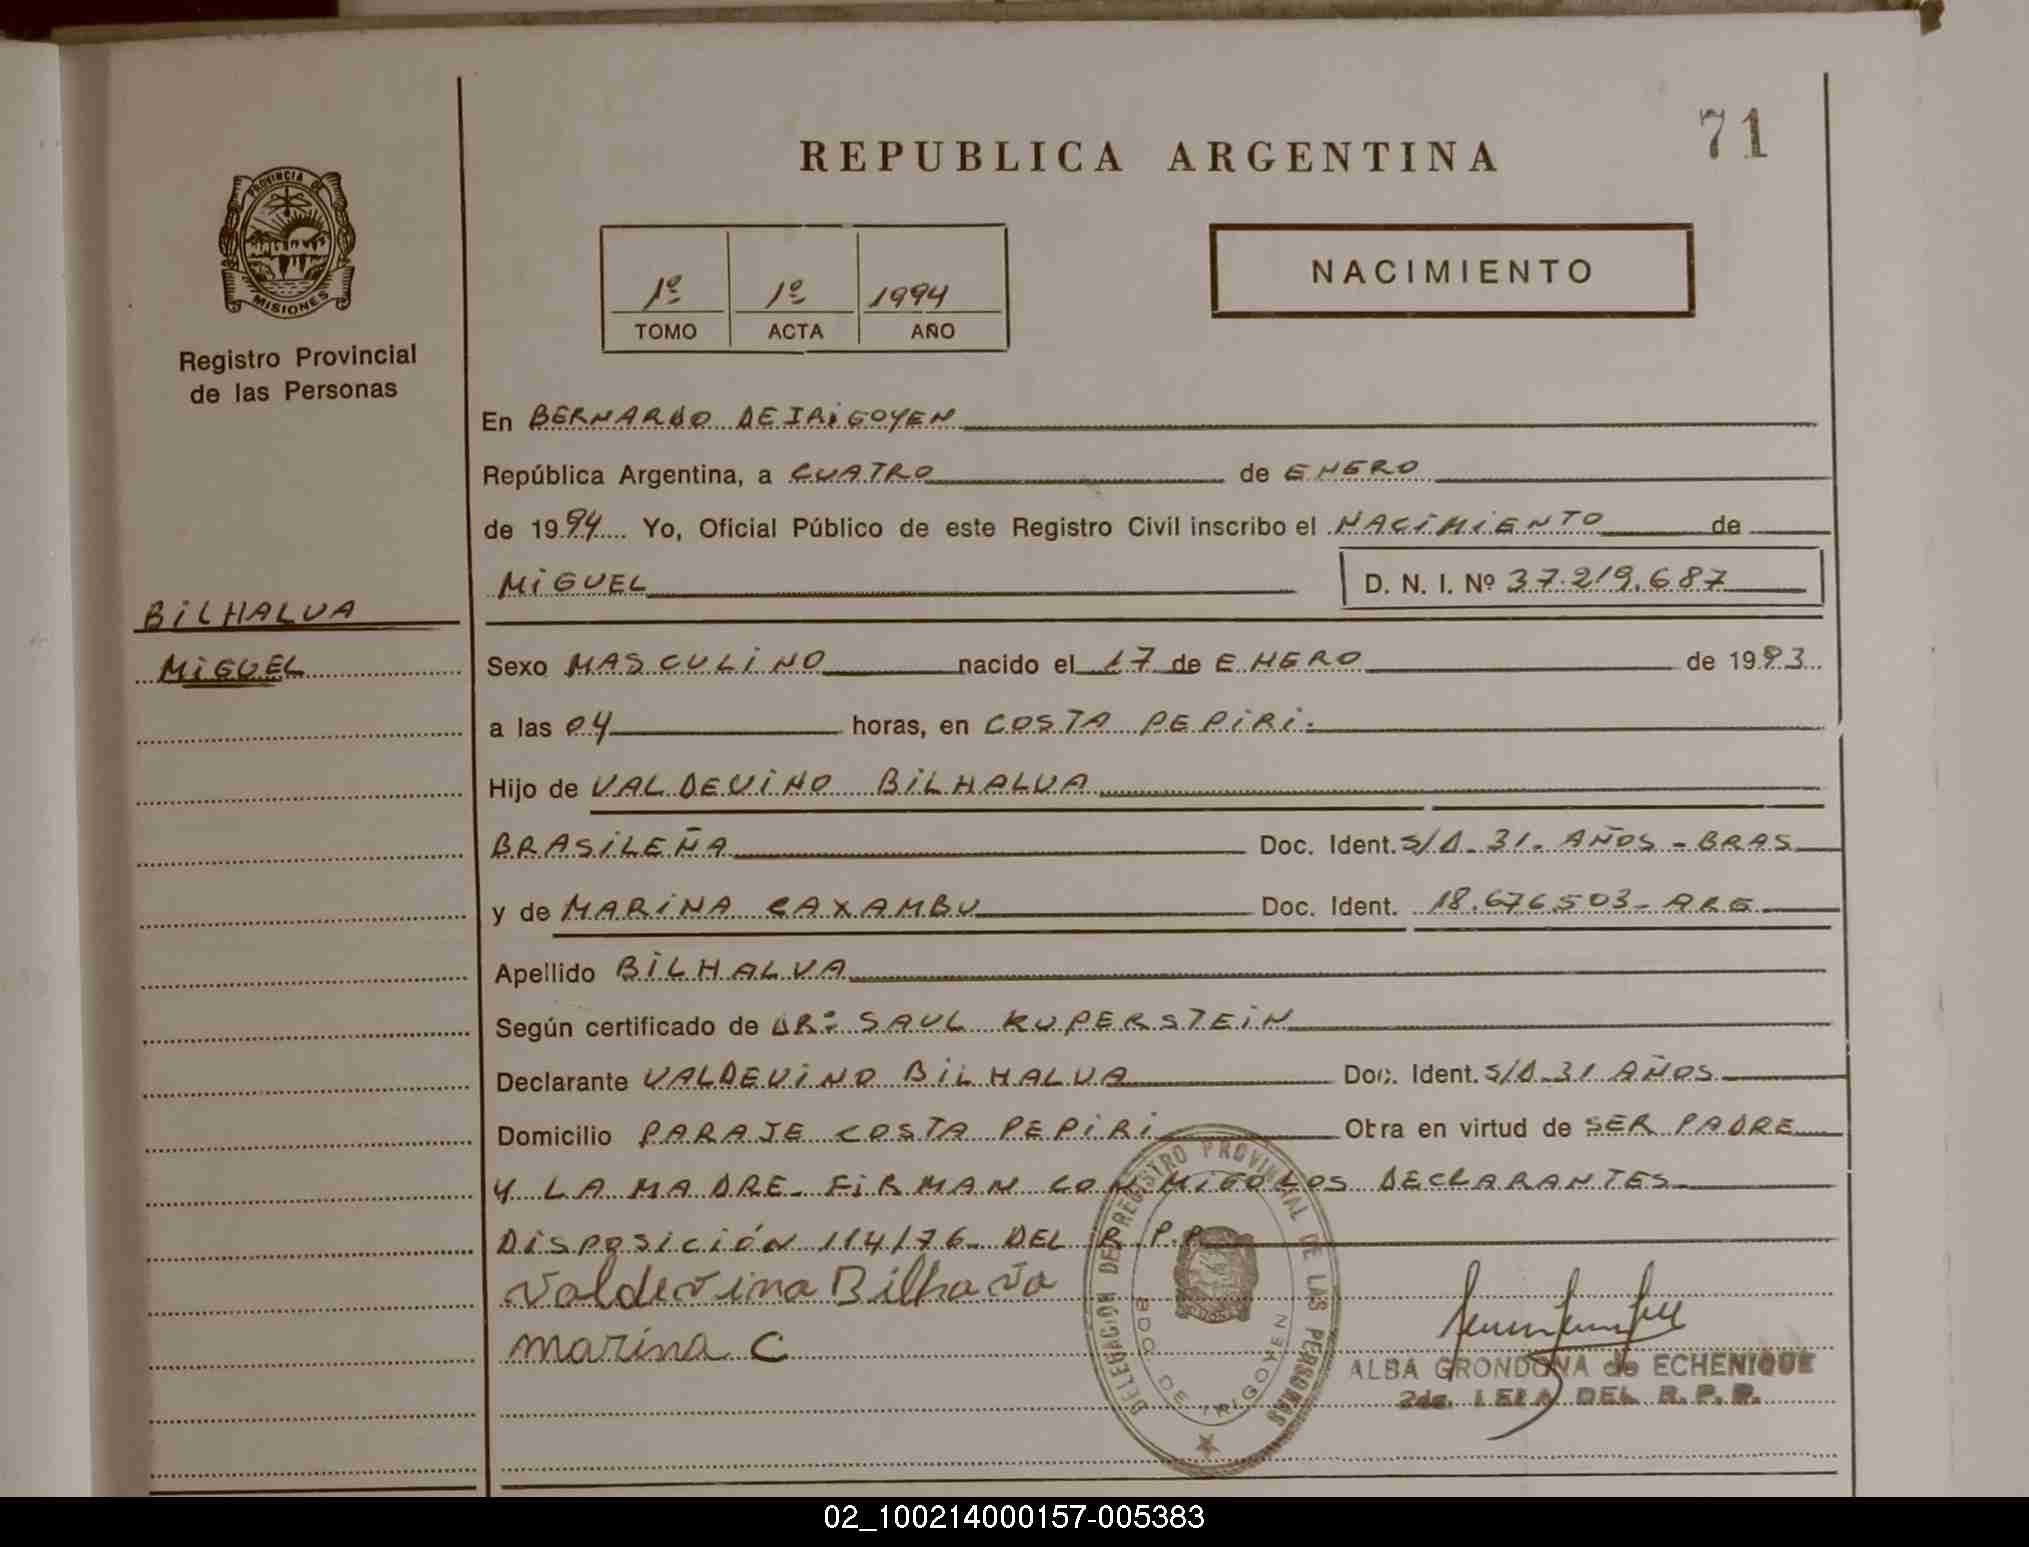 71
REPUBLICA ARGENTINA
PROVINCIA DE
MISIONES
Registro Provincial
de las Personas
1º 1º 1994
TOMO ACTA AÑO
NACIMIENTO
En BERNARDO DE IRIGOYEN
República Argentina, a CUATRO de ENERO
de 1994 Yo, Oficial Público de este Registro Civil inscribo el NACIMIENTO de
MIGUEL D. N. I. Nº 37.219.687
BILHALVA
MIGUEL
Sexo MASCULINO nacido el 17 de ENERO de 1993
a las 04 horas, en COSTA PEPIRI.
Hijo de VALDEVINO BILHALVA
BRASILEÑA Doc. Ident. S/D. 31. AÑOS - BRAS
y de MARINA CAXAMBU Doc. Ident. 18.676.503- ARG
Apellido BILHALVA
Según certificado de DR: SAUL KUPERSTEIN
Declarante VALDEVINO BILHALVA Doc. Ident. S/D. 31 AÑOS
Domicilio PARAJE COSTA PEPIRI Otra en virtud de SER PADRE
Y LA MADRE. FIRMAN CONMIGO LOS DECLARANTES
DISPOSICIÓN 114/76 DEL R.P.P.
Valdevino Bilhava
marina C
DELEGACION DEL REGISTRO PROVINCIAL DE LAS PERSONAS
BDO. DE IRIGOYEN
ALBA GRONDONA de ECHENIQUE
DEL R.P.P.
02_100214000157-005383